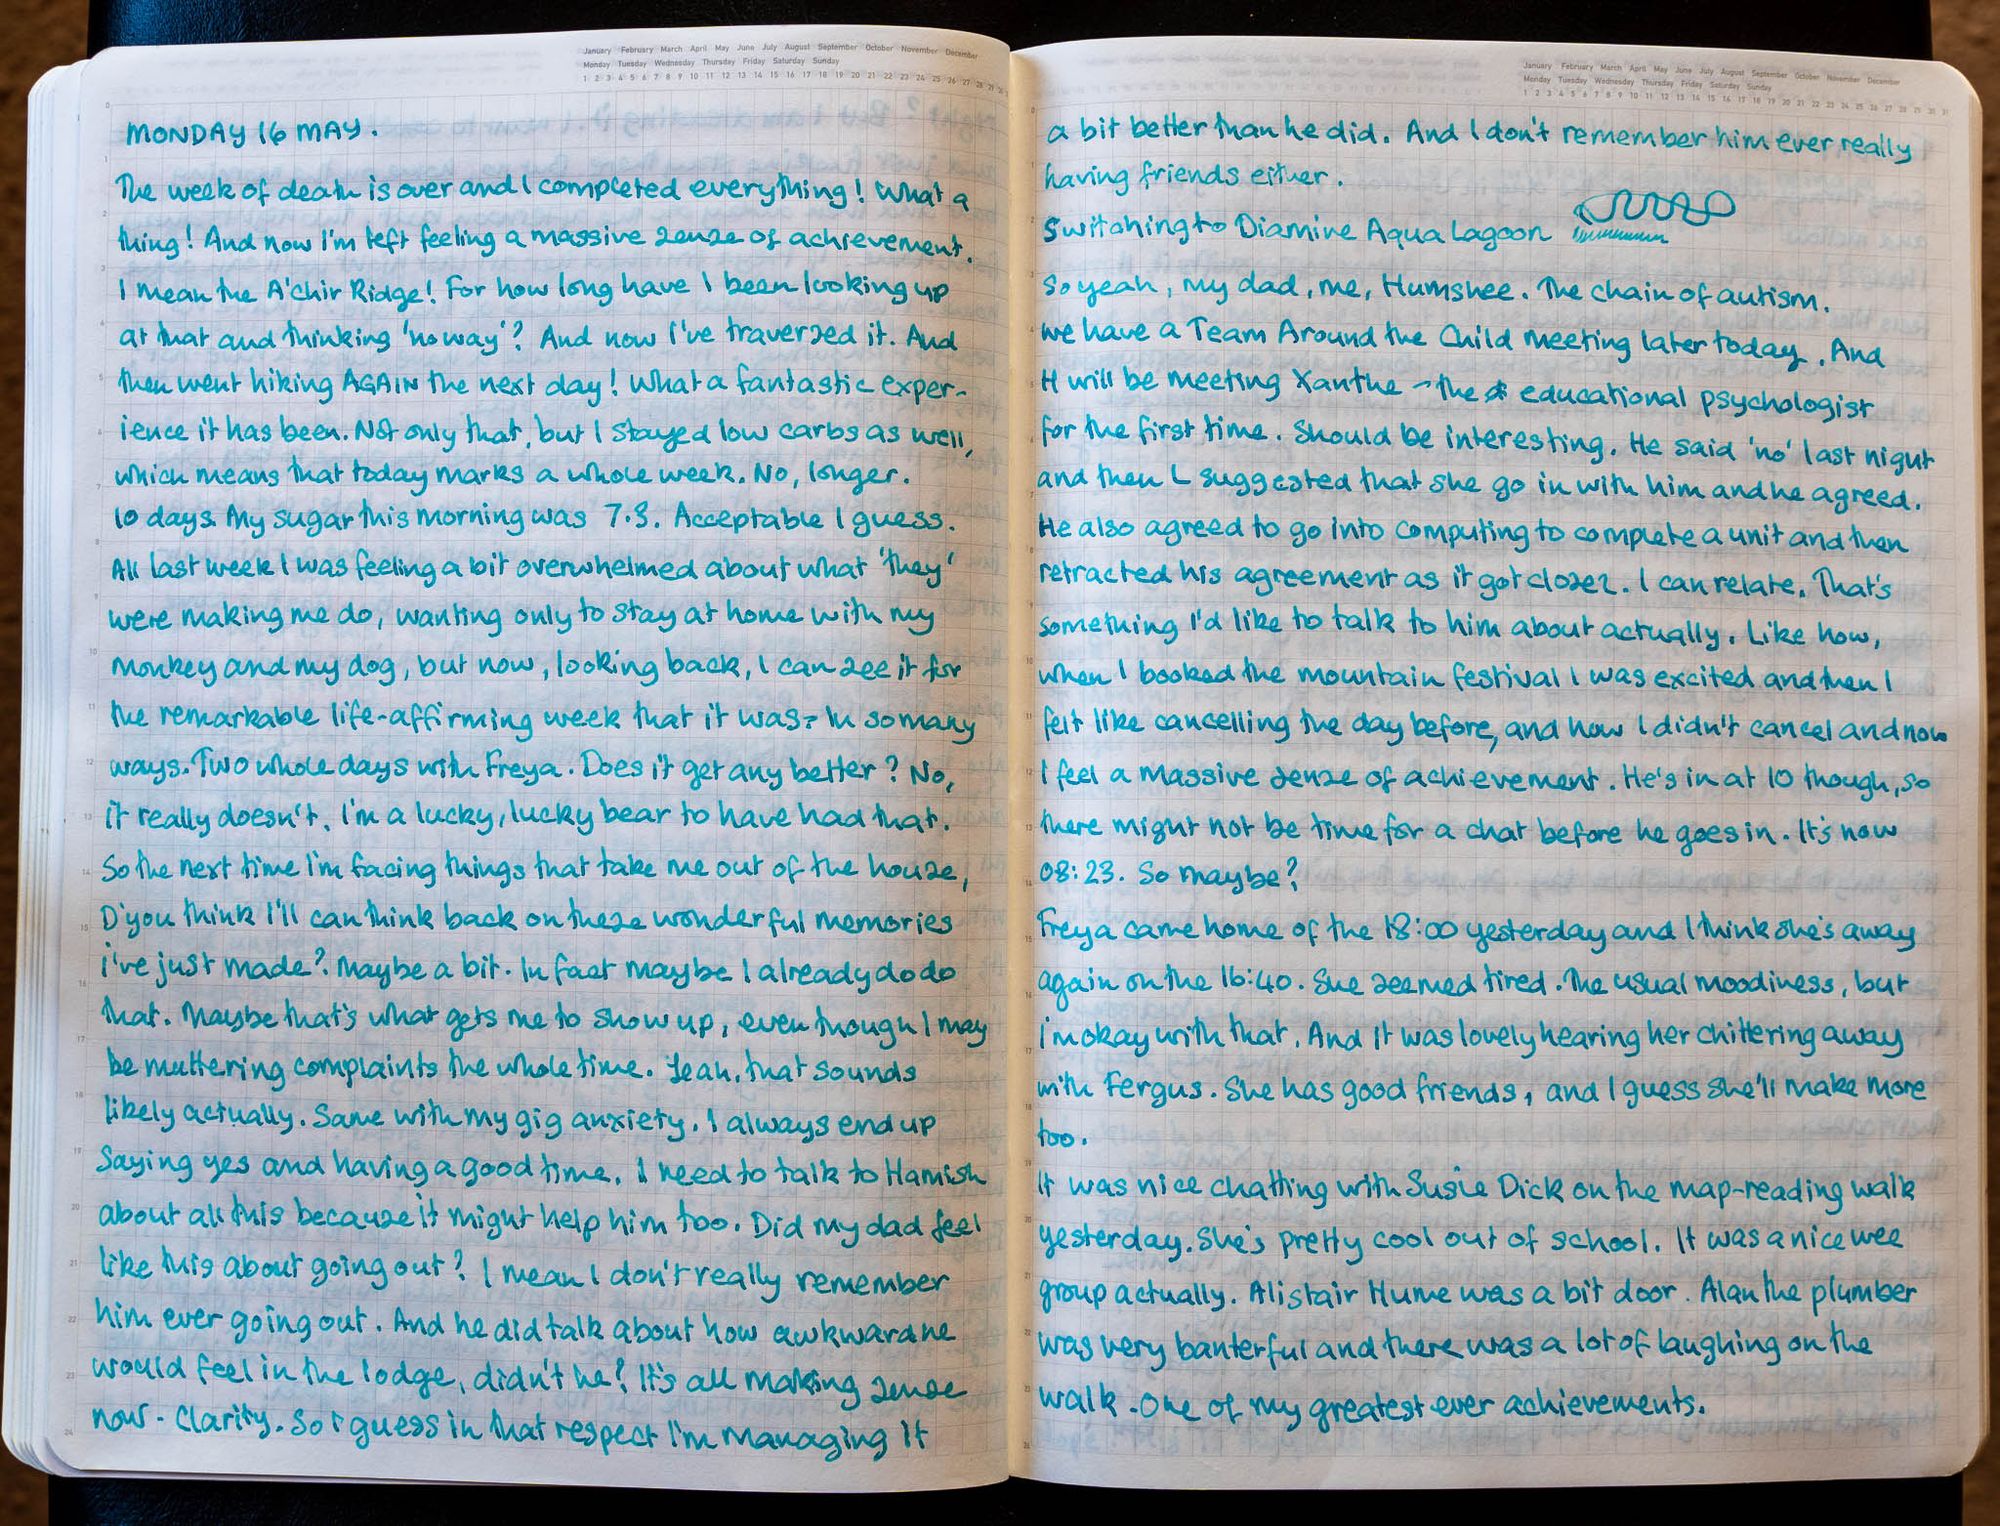 January February March April May June July August September October November December
Monday Tuesday Wednesday Thursday Friday Saturday Sunday
1 2 3 4 5 6 7 8 9 10 11 12 13 14 15 16 17 18 19 20 21 22 23 24 25 26 27 28 29 30
MONDAY 16 MAY.
The week of death is over and I completed everything! What a
thing! And now I'm left feeling a massive sense of achievement.
I mean the A'Chir Ridge! For how long have I been looking up
at that and thinking 'no way'? And now I've traversed it. And
then went hiking AGAIN the next day! What a fantastic exper-
ience it has been. Not only that, but I stayed low carbs as well,
which means that today marks a whole week. No, longer.
10 days. My sugar this morning was 7.3. Acceptable I guess.
All last week I was feeling a bit overwhelmed about what 'they'
were making me do, wanting only to stay at home with my
monkey and my dog, but now, looking back, I can see it for
the remarkable life-affirming week that it was. In so many
ways. Two whole days with Freya. Does it get any better? No,
it really doesn't. I'm a lucky, lucky bear to have had that.
So the next time I'm facing things that take me out of the house,
D'you think I'll can think back on these wonderful memories
I've just made? Maybe a bit. In fact maybe I already do do
that. Maybe that's what gets me to show up, even though I may
be muttering complaints the whole time. Yeah, that sounds
likely actually. Same with my gig anxiety. I always end up
saying yes and having a good time. I need to talk to Hamish
about all this because it might help him too. Did my dad feel
like this about going out? I mean I don't really remember
him ever going out. And he did talk about how awkward he
would feel in the lodge, didn't he? It's all making sense
now. Clarity. So I guess in that respect I'm managing it
January February March April May June July August September October November December
Monday Tuesday Wednesday Thursday Friday Saturday Sunday
1 2 3 4 5 6 7 8 9 10 11 12 13 14 15 16 17 18 19 20 21 22 23 24 25 26 27 28 29 30 31
a bit better than he did. And I don't remember him ever really
having friends either.
Switching to Diamine Aqua Lagoon
So yeah, my dad, me, Humshee. The chain of autism.
We have a Team Around the Child meeting later today. And
H will be meeting Xanthe - the educational psychologist
for the first time. Should be interesting. He said 'no' last night
and then I suggested that she go in with him and he agreed.
He also agreed to go into computing to complete a unit and then
retracted his agreement as it got closer. I can relate. That's
something I'd like to talk to him about actually. Like how,
when I booked the mountain festival I was excited and then I
felt like cancelling the day before, and how I didn't cancel and now
I feel a massive sense of achievement. He's in at 10 though, so
there might not be time for a chat before he goes in. It's now
08:23. So maybe?
Freya came home of the 18:00 yesterday and I think she's away
again on the 16:40. She seemed tired. The usual moodiness, but
I'm okay with that. And it was lovely hearing her chittering away
with Fergus. She has good friends, and I guess she'll make more
too.
It was nice chatting with Susie Dick on the map-reading walk
yesterday. She's pretty cool out of school. It was a nice wee
group actually. Alistair Hume was a bit door. Alan the plumber
was very banterful and there was a lot of laughing on the
walk. One of my greatest ever achievements.